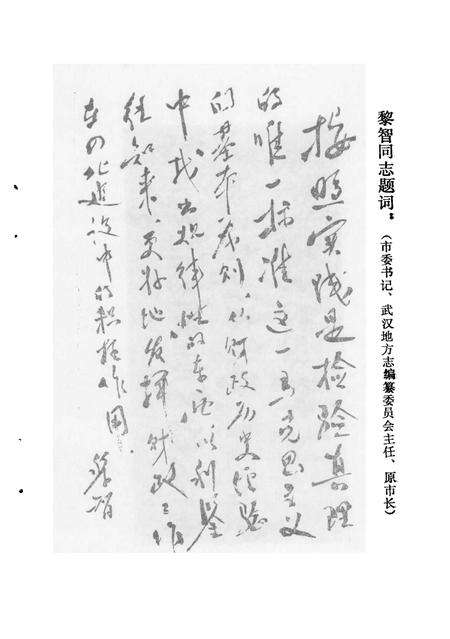 黎智同志题词：
（市委书记、武汉地方志编纂委员会主任、原市长）
按照实践是检验真理
的唯一标准这一马克思主义
的基本原则，从财政历史经验
中找出规律性的东西，以利鉴
往知来，更好地发挥财政工作
在四化建设中的积极作用。 黎智